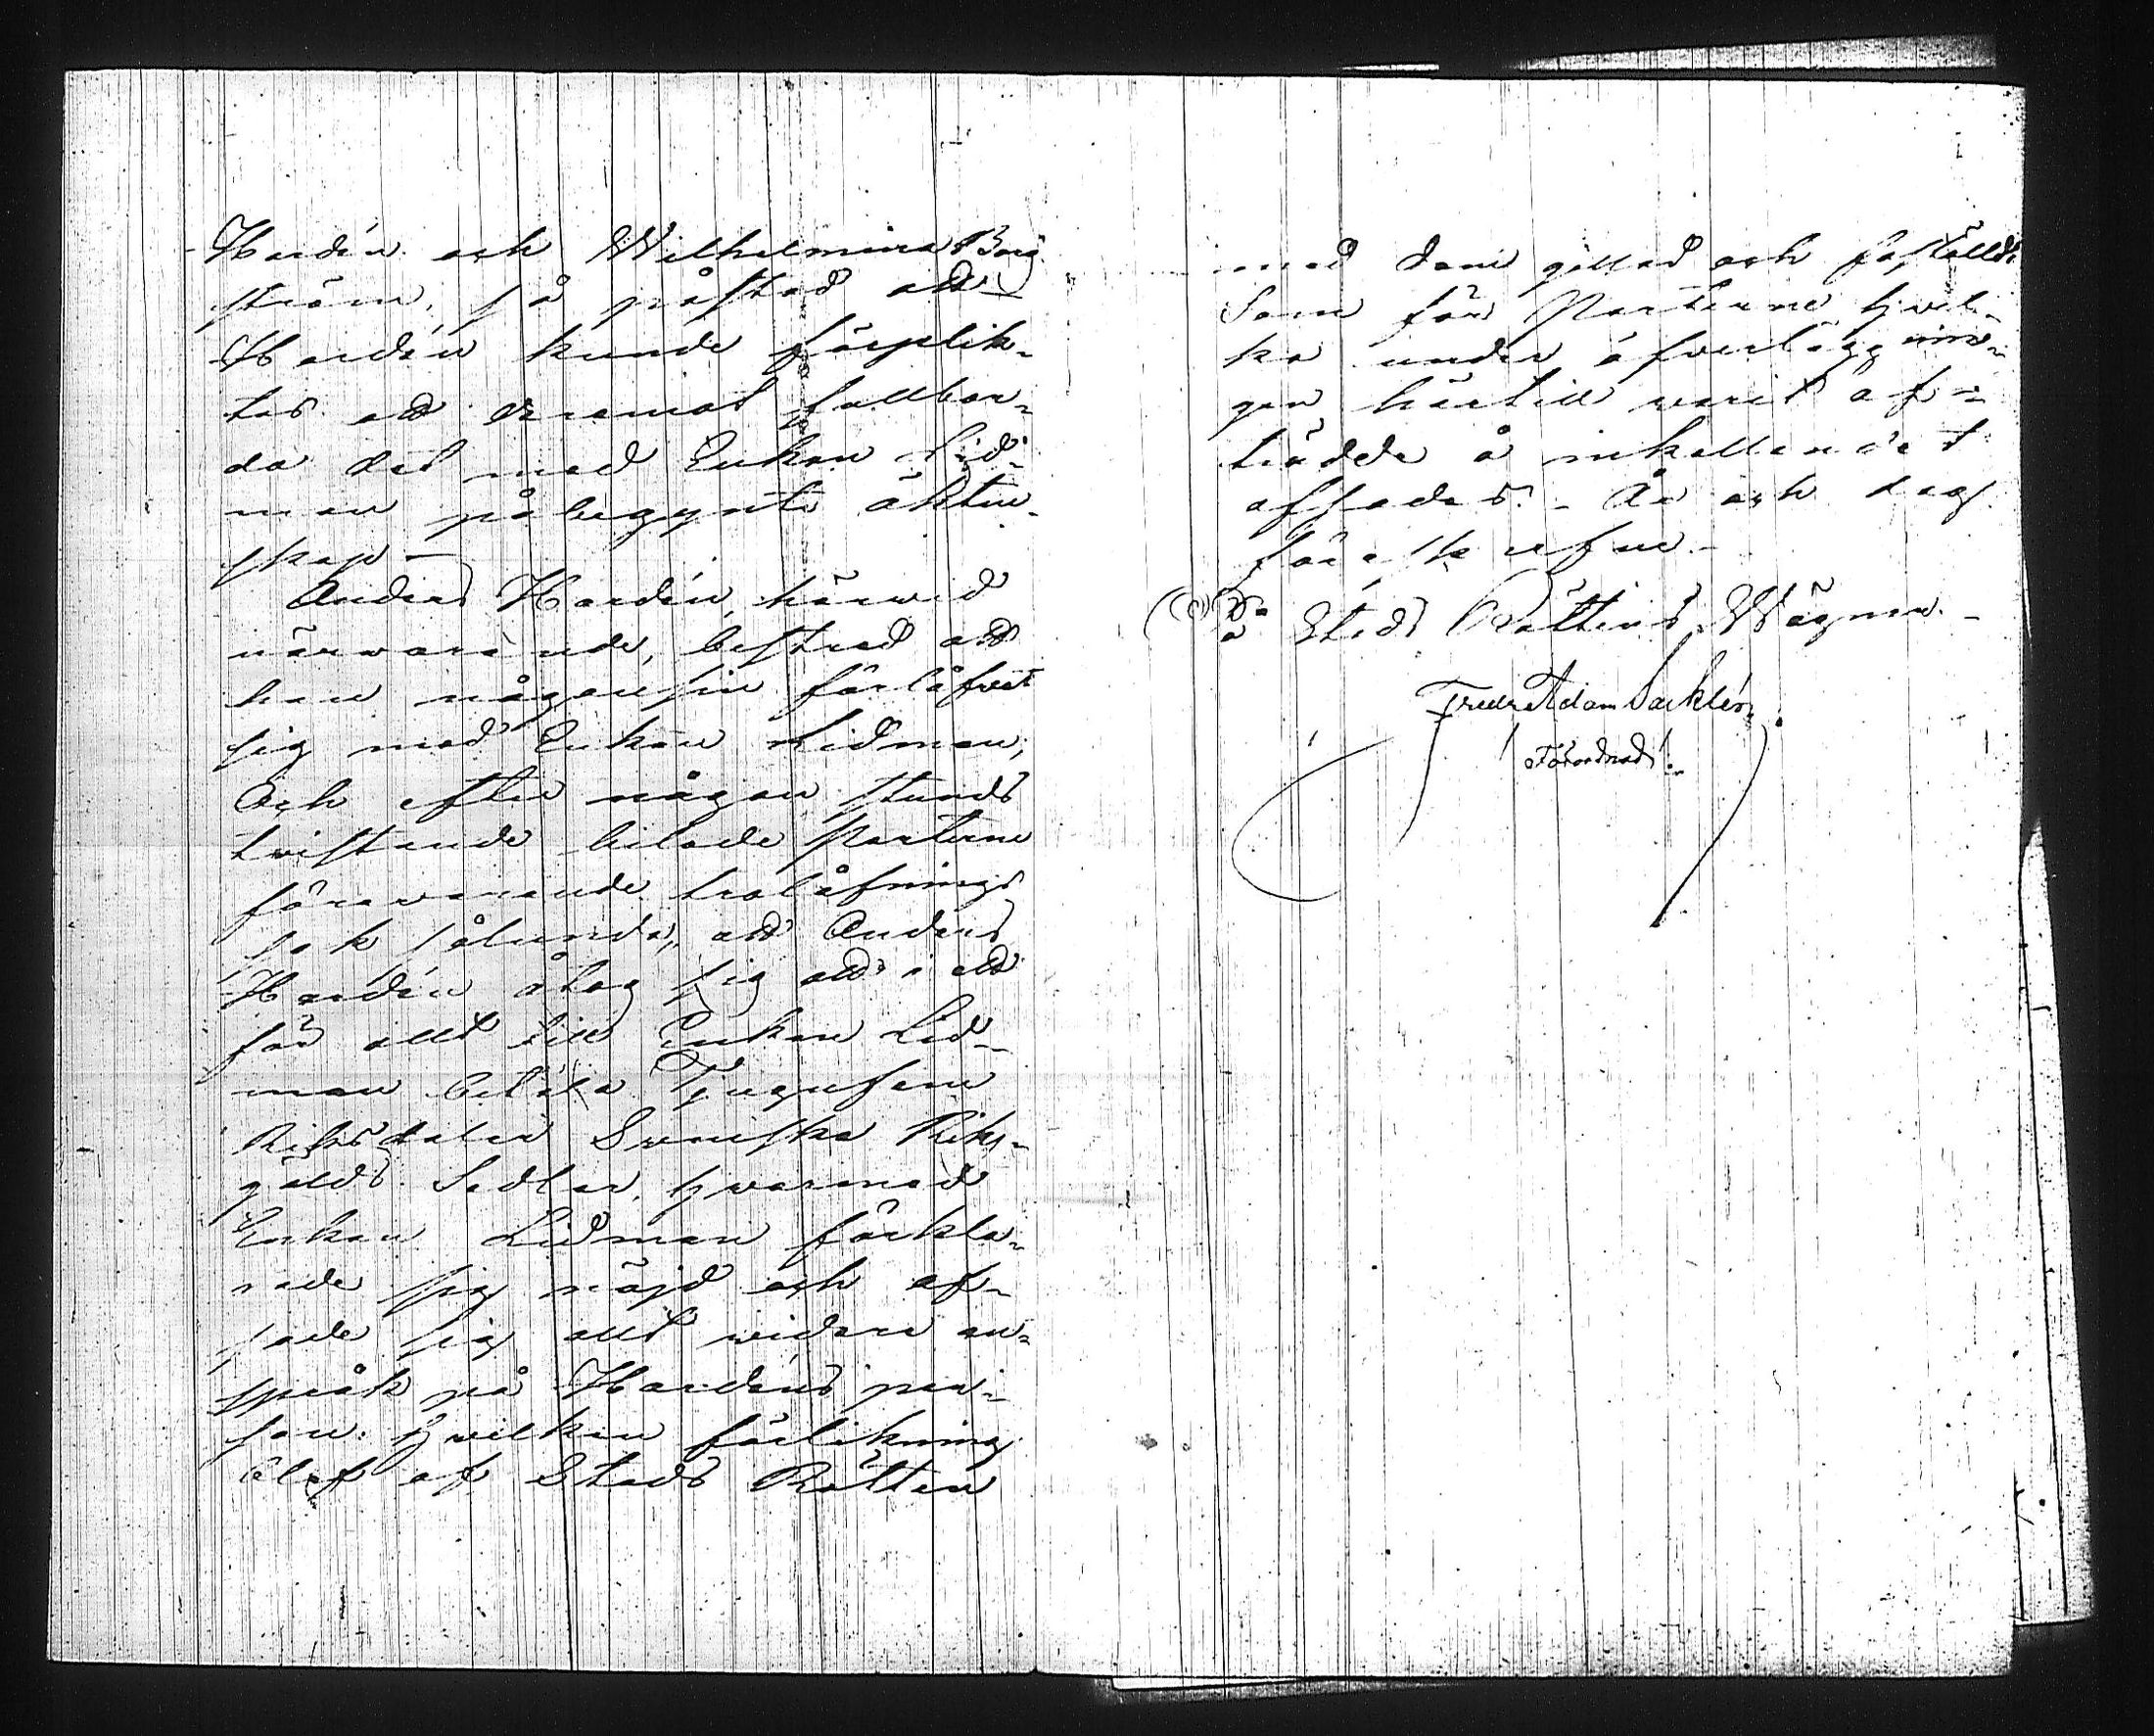 Hardén och Wilhelmina Berg
ström, så påstod att
Hardén kunde förplik-
tas att oramat fullbor-
da det med Enkan Lid-
man påbegynte ächten-
skap –
Anders Hardén, härwid
närwarande, bestred att
han någonsin förlåfvat
sig med Enkan Lidman;
Och efter någon stunds
twistande bilade Parterne
förewarande trolåfnings
sak sålunda, att Anders
Hardén åtog sig att i ett
för allt till Enkan Lid-
man betala Tjugufem
Riksdaler Swenska Riks-
gälds Sedlar, hwarmed
Enkan Lidman förkla-
rade sig nöjd och af-
sade sig allt widare an-
språk på Hardéns per-
son: hwilken förlikning
blef af Stads Rätten
med dom gillad och faställd
Som för Parterne hwil-
ka under öfverläggnin-
gen härtill varit af-
trädde å inkallandet
afsades. – År och dag
förreskrefne –
På Stads Rättens Wägnar. –
Fredr Adam Sacklén.
/Förordnad/.